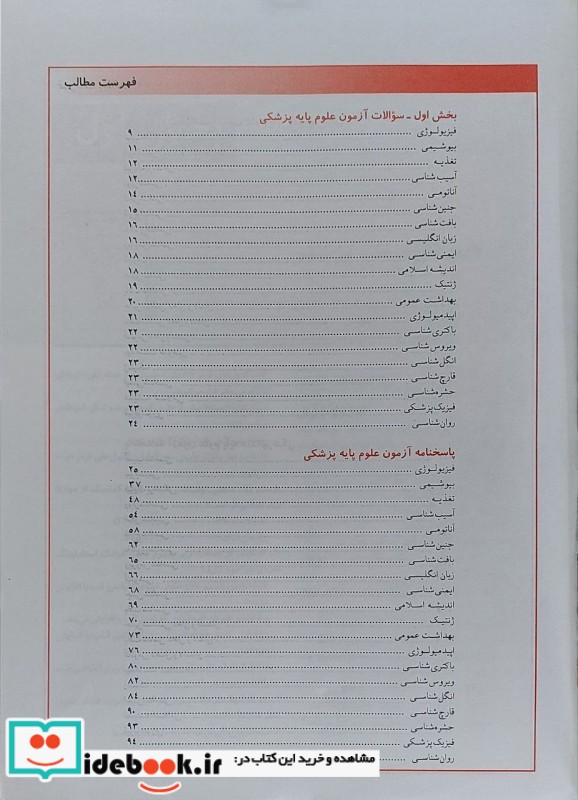 فهرست مطالب
بخش اول ـ سؤالات آزمون علوم پایه پزشکی
فیزیولوژی ........ ۹
بیوشیمی ........ ۱۱
تغذیه ........ ۱۲
آسیب‌شناسی ........ ۱۲
آناتومی ........ ۱۴
جنین‌شناسی ........ ۱۵
بافت‌شناسی ........ ۱۶
زبان انگلیسی ........ ۱۶
ایمنی‌شناسی ........ ۱۸
اندیشه اسلامی ........ ۱۸
ژنتیک ........ ۱۹
بهداشت عمومی ........ ۲۰
اپیدمیولوژی ........ ۲۱
باکتری‌شناسی ........ ۲۲
ویروس‌شناسی ........ ۲۲
انگل‌شناسی ........ ۲۳
قارچ‌شناسی ........ ۲۳
حشره‌شناسی ........ ۲۳
فیزیک‌پزشکی ........ ۲۳
روان‌شناسی ........ ۲۴
پاسخنامه آزمون علوم پایه پزشکی
فیزیولوژی ........ ۲۵
بیوشیمی ........ ۳۷
تغذیه ........ ۴۸
آسیب‌شناسی ........ ۵۴
آناتومی ........ ۵۸
جنین‌شناسی ........ ۶۲
بافت‌شناسی ........ ۶۵
زبان انگلیسی ........ ۶۶
ایمنی‌شناسی ........ ۶۸
اندیشه اسلامی ........ ۶۹
ژنتیک ........ ۷۰
بهداشت عمومی ........ ۷۳
اپیدمیولوژی ........ ۷۶
باکتری‌شناسی ........ ۸۰
ویروس‌شناسی ........ ۸۲
انگل‌شناسی ........ ۸۴
قارچ‌شناسی ........ ۹۰
حشره‌شناسی ........ ۹۳
فیزیک‌پزشکی ........ ۹۴
روان‌شناسی ........
مشاهده و خرید این کتاب در:
idebook.ir